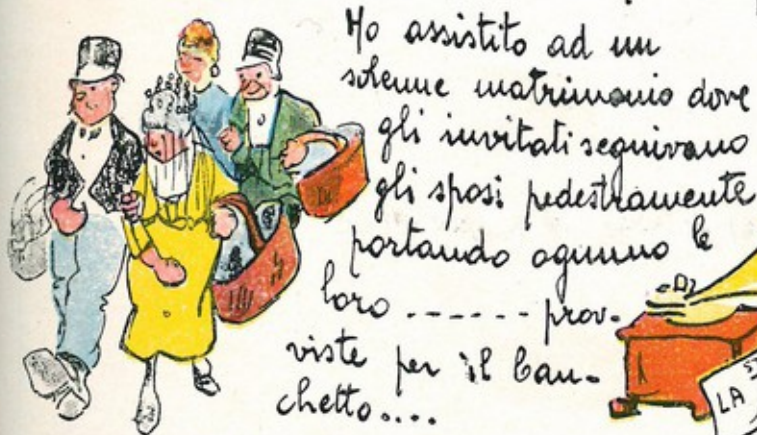 Ho assistito ad un
solenne matrimonio dove
gli invitati seguivano
gli sposi pedestramente
portando ognuno le
loro ------ prov-
viste per il ban-
chetto....
LA